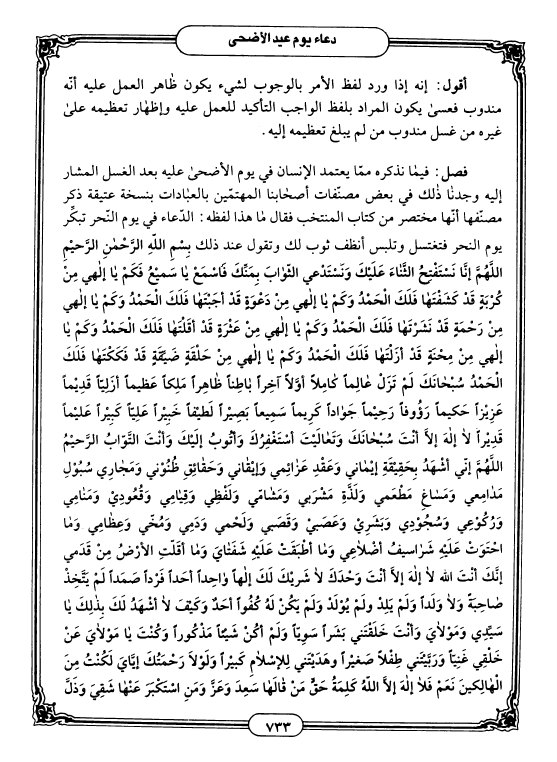 دعاء يوم عيد الأضحى
أقول: إنه إذا ورد لفظ الأمر بالوجوب لشيء يكون ظاهر العمل عليه أنّه
مندوب فعسىٰ يكون المراد بلفظ الواجب التأكيد للعمل عليه وإظهار تعظيمه علىٰ
غيره من غسل مندوب من لم يبلغ تعظيمه إليه.
فصل: فيما نذكره ممّا يعتمد الإنسان في يوم الأضحىٰ عليه بعد الغسل المشار
إليه وجدنا ذٰلك في بعض مصنّفات أصحابنا المهتمّين بالعبادات بنسخة عتيقة ذكر
مصنّفها أنّها مختصر من كتاب المنتخب فقال ما هذا لفظه: الدّعاء في يوم النّحر تبكّر
يوم النحر فتغتسل وتلبس أنظف ثوب لك وتقول عند ذلك بِسْمِ اللّٰهِ الرَّحْمٰنِ الرَّحيْمِ
اللّٰهُمَّ إنّا نَسْتَفْتِحُ الثَّناءَ عَلَيْكَ وَنَسْتَدْعي الثَّوابَ بِمَنِّكَ فَاسْمَعْ يا سَميْعُ فَكَمْ يا إلٰهي مِنْ
كُرْبَةٍ قَدْ كَشَفْتَها فَلَكَ الْحَمْدُ وَكَمْ يا إلٰهي مِنْ دَعْوَةٍ قَدْ أجَبْتَها فَلَكَ الْحَمْدُ وَكَمْ يا إلٰهي
مِنْ رَحْمَةٍ قَدْ نَشَرْتَها فَلَكَ الْحَمْدُ وَكَمْ يا إلٰهي مِنْ عَثْرَةٍ قَدْ أقَلْتَها فَلَكَ الْحَمْدُ وَكَمْ يا
إلٰهي مِنْ مِحْنَةٍ قَدْ أزَلْتَها فَلَكَ الْحَمْدُ وَكَمْ يا إلٰهي مِنْ حَلْقَةٍ ضَيِّقَةٍ قَدْ فَكَكْتَها فَلَكَ
الْحَمْدُ سُبْحانَكَ لَمْ تَزَلْ عالِماً كامِلاً أوَّلاً آخِراً باطِناً ظاهِراً مَلِكاً عَظيماً أزَلِيّاً قَديْماً
عَزيْزاً حَكيْماً رَؤُوفاً رَحيْماً جَواداً كَريْماً سَميعاً بَصيْراً لَطيْفاً خَبيْراً عَلِيّاً كَبيْراً عَليْماً
قَديْراً لا إلٰهَ إلاّ أنْتَ سُبْحانَكَ وَتَعالَيْتَ أسْتَغْفِرُكَ وَأتُوبُ إلَيْكَ وَأنْتَ التَّوّابُ الرَّحيْمُ
اللّٰهُمَّ إنّي أشْهَدُ بِحَقيْقَةِ إيْماني وَعَقْدِ عَزائِمي وَإيْقاني وَحَقائِقِ ظُنُوني وَمَجاري سُيُولِ
مَدامِعي وَمَساغِ مَطْعَمي وَلَذَّةِ مَشْرَبي وَمَشامّي وَلَفْظي وَقِيامي وَقُعُودي وَمَنامي
وَرُكُوعي وَسُجُودي وَبَشَري وَعَصَبيْ وَقَصَبي وَلَحْمي وَدَمي وَمُخّي وَعِظامي وَما
احْتَوَتْ عَلَيْهِ شَراسيفُ أضْلاعي وَما أطْبَقَتْ عَلَيْهِ شَفَتايَ وَما أقَلَّتِ الأرْضُ مِنْ قَدَمي
إنَّكَ أنْتَ الله لا إلٰهَ إلاّ أنْتَ وَحْدَكَ لا شَريْكَ لَكَ إلٰهاً واحِداً أحَداً فَرْداً صَمَداً لَمْ يَتَّخِذْ
صاحِبَةً وَلا وَلَداً وَلَمْ يَلِدْ ولَمْ يُوْلَدْ وَلَمْ يَكُنْ لَهُ كُفُواً أحَدٌ وَكَيْفَ لا أشْهَدُ لَكَ بِذٰلِكَ يا
سَيِّدي وَمَوْلايَ وَأنْتَ خَلَقْتَني بَشَراً سَوِيّاً وَلَمْ أكُنْ شَيْئاً مَذْكُوراً وَكُنْتَ يا مَوْلايَ عَنْ
خَلْقي غَنِيّاً وَرَبَّيْتَني طِفْلاً صَغيْراً وَهَدَيْتَني لِلإسْلامِ كَبيْراً وَلَوْلا رَحْمَتُكَ إيّايَ لَكُنْتُ مِنَ
الْهالِكينَ نَعَمْ فَلا إلٰهَ إلاّ اللّٰهُ كَلِمَةُ حَقٍّ مَنْ قالَها سَعِدَ وَعَزَّ وَمَنِ اسْتَكْبَرَ عَنْها شَقِيَ وَذَلَّ
٧٣٣